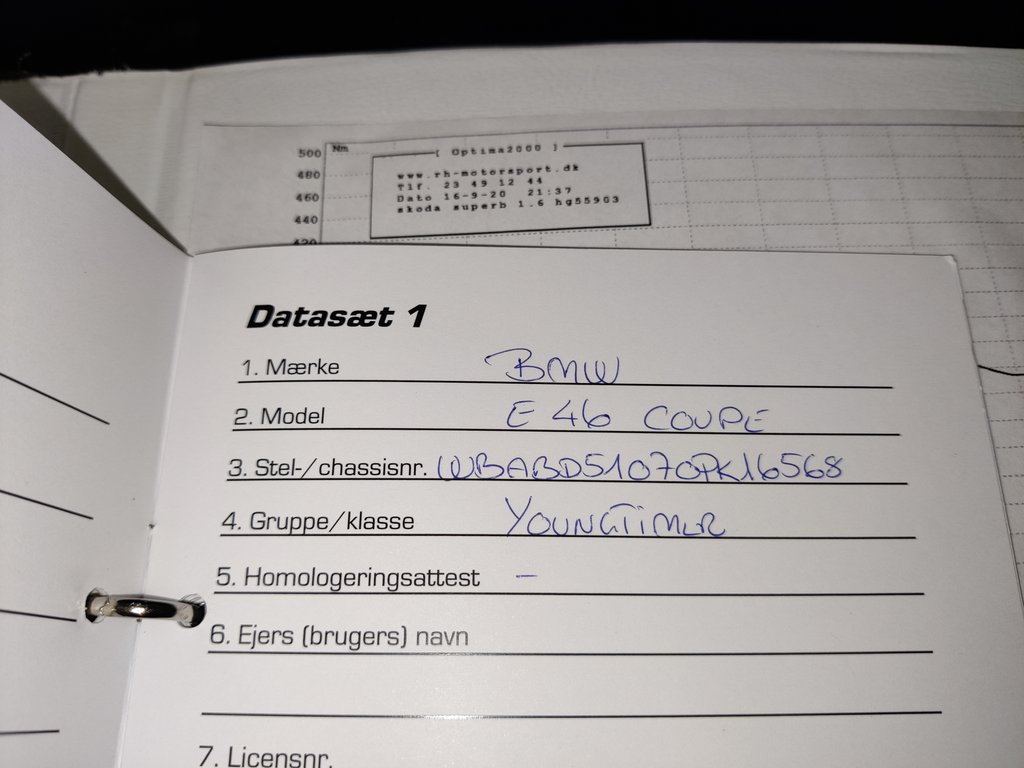 500 Nm
[ Optima2000 ]
480
www.rh-motorsport.dk
Tlf. 23 49 12 44
460
Dato 16-9-20 21:37
skoda superb 1.6 hg55903
440
420
Datasæt 1
1. Mærke BMW
2. Model E 46 COUPE
3. Stel-/chassisnr. WBABD51070PK16568
4. Gruppe/klasse YOUNGTIMER
5. Homologeringsattest -
6. Ejers (brugers) navn
7. Licensnr.